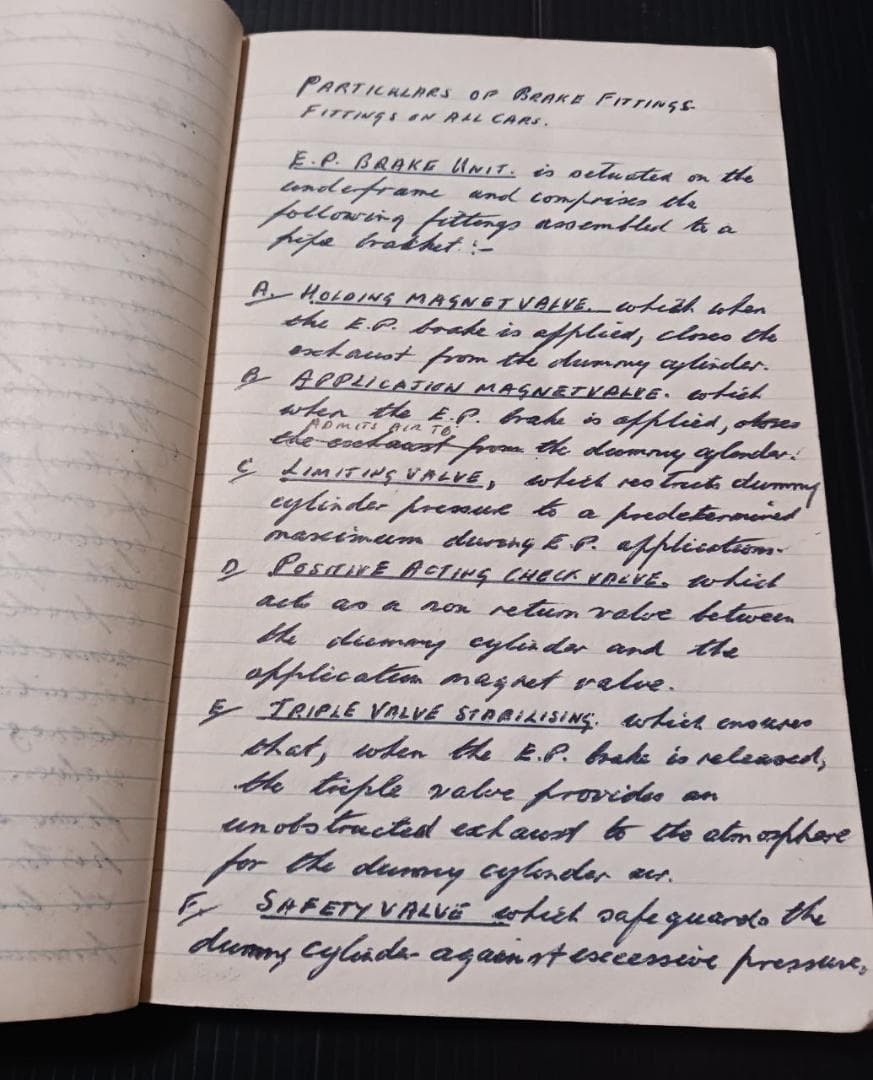 PARTICULARS OF BRAKE FITTINGS
FITTINGS ON ALL CARS.
E.P. BRAKE UNIT. is situated on the
underframe and comprises the
following fittings assembled to a
pipe bracket :-
A. HOLDING MAGNET VALVE. which when
the E.P. brake is applied, closes the
exhaust from the dummy cylinder.
B APPLICATION MAGNET VALVE. which
when the E.P. brake is applied, closes
ADMITS AIR TO
the exhaust from the dummy cylinder.
C LIMITING VALVE, which restricts dummy
cylinder pressure to a predetermined
maximum during E.P. applications.
D POSITIVE ACTING CHECK VALVE. which
acts as a non return valve between
the dummy cylinder and the
application magnet valve.
E TRIPLE VALVE STABILISING. which ensures
that, when the E.P. brake is released,
the triple valve provides an
unobstructed exhaust to the atmosphere
for the dummy cylinder air.
F. SAFETY VALVE which safeguards the
dummy cylinder against excessive pressure.